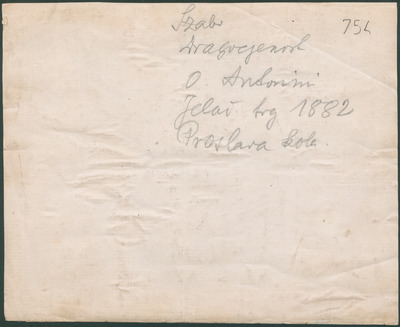 Szabo
754
Dragocjenost
O Antonini
Jelač trg 1882
Proslava kola